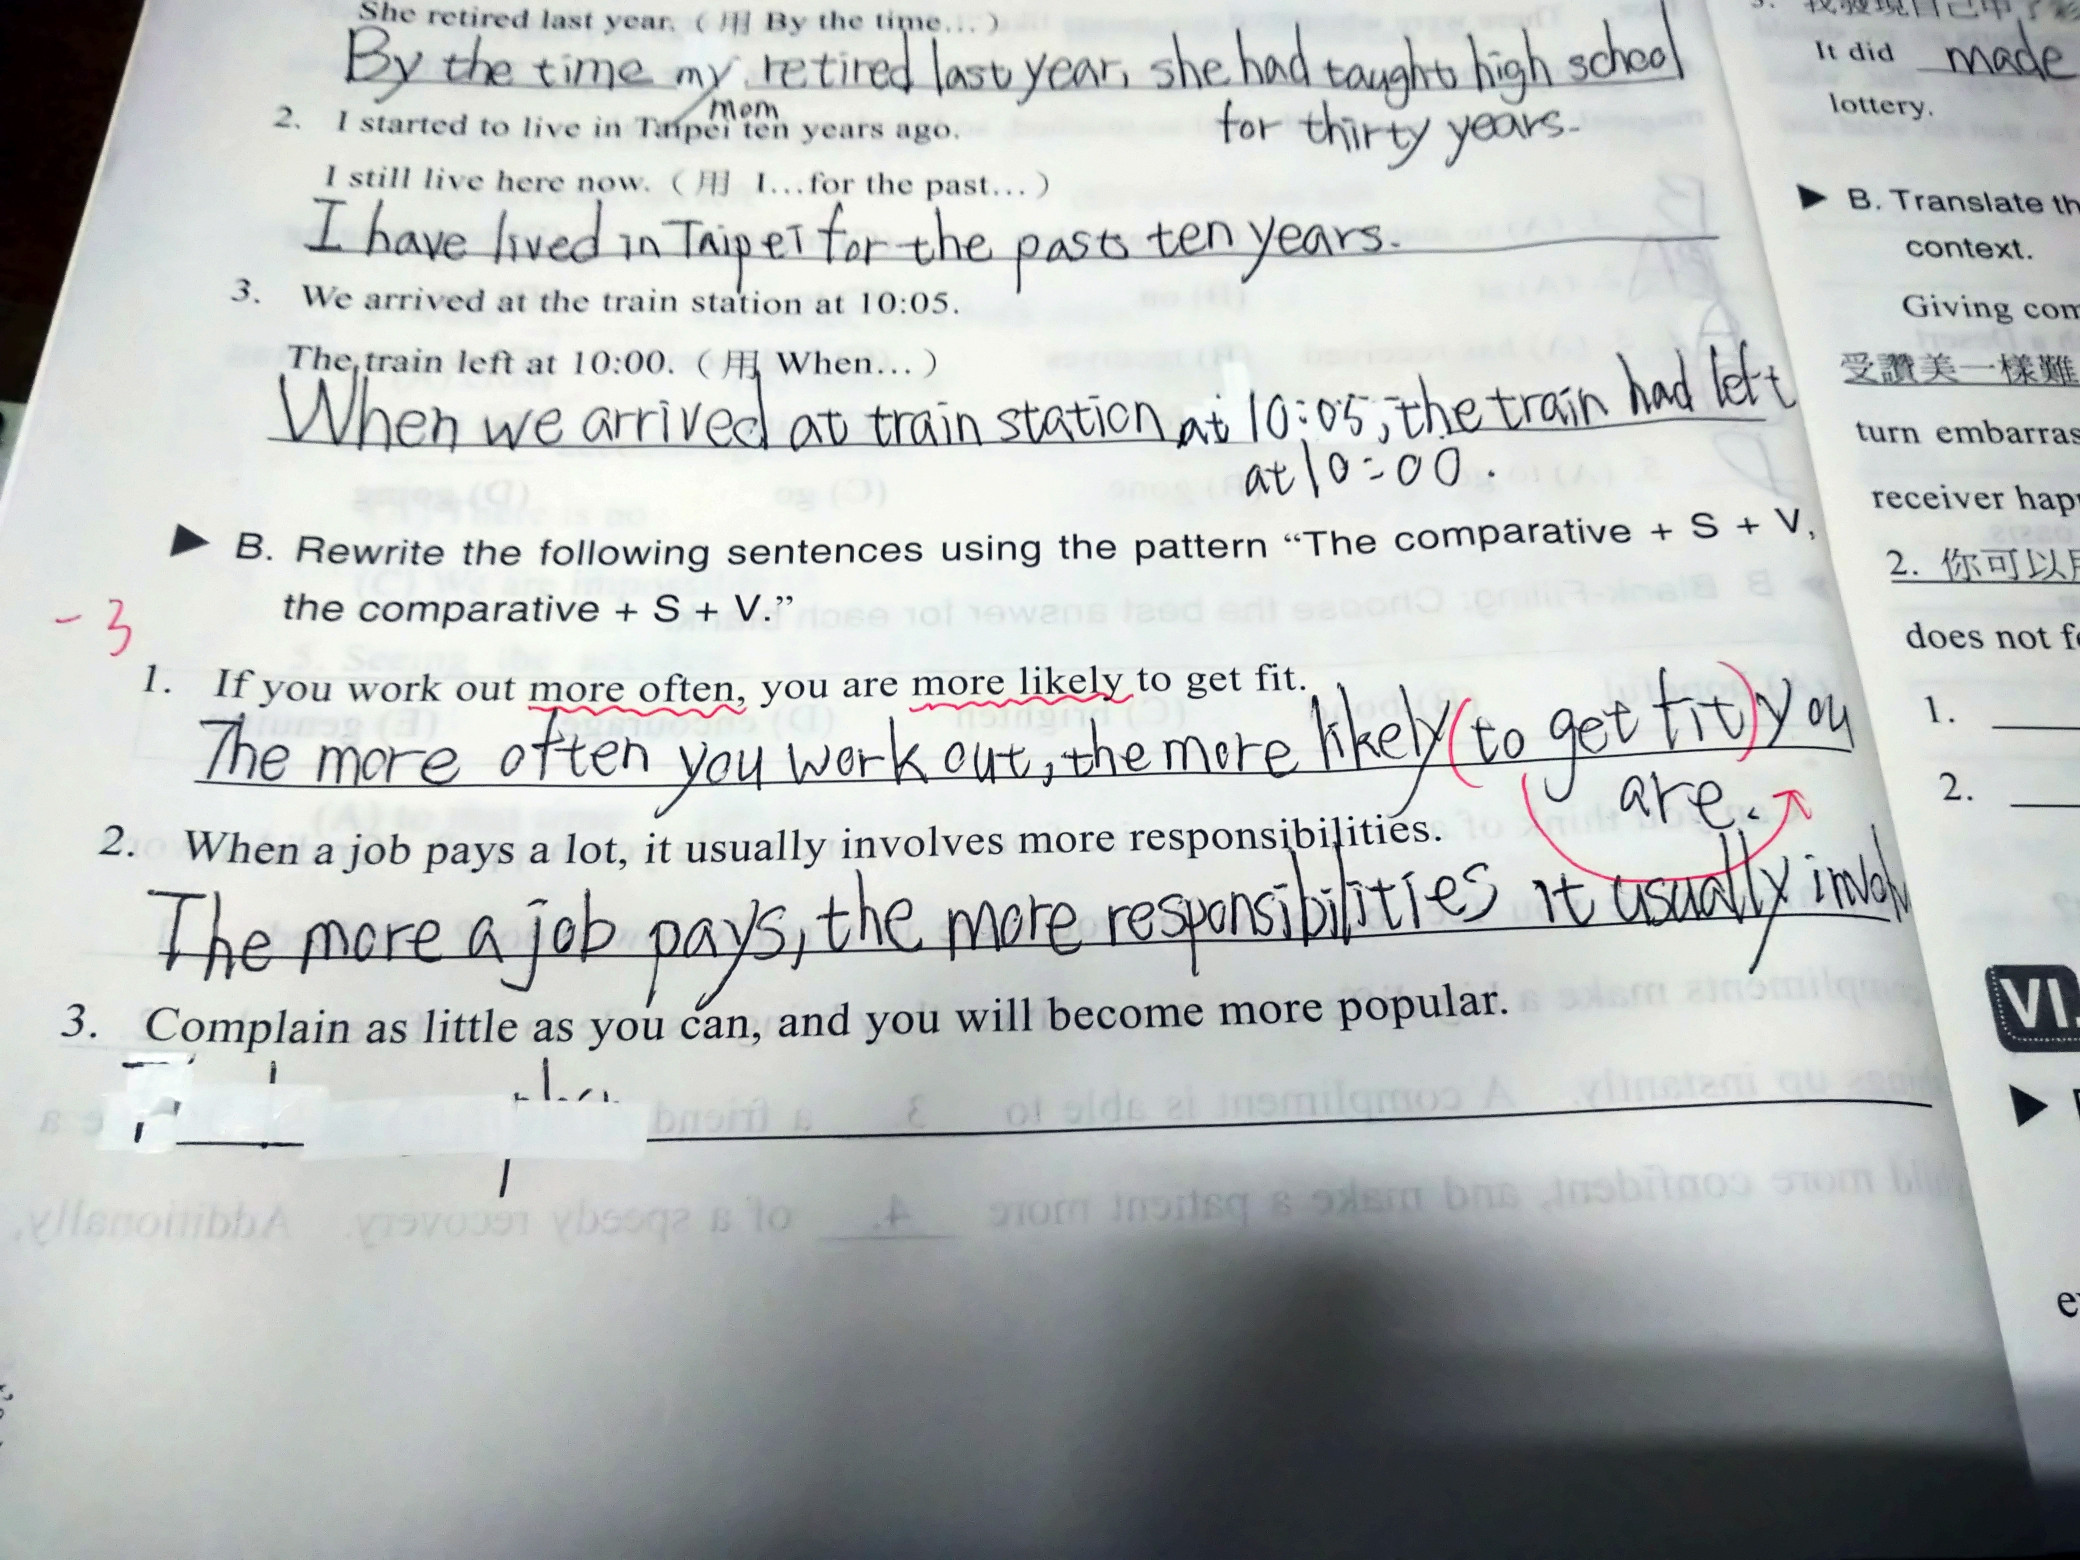 She retired last year. ( 用 By the time… )
By the time my mom retired last year, she had taught high school
for thirty years.
2. I started to live in Taipei ten years ago.
I still live here now. ( 用 I…for the past… )
I have lived in Taipei for the past ten years.
3. We arrived at the train station at 10:05.
The train left at 10:00. ( 用 When… )
When we arrived at train station at 10:05, the train had left
at 10:00.
▶ B. Rewrite the following sentences using the pattern “The comparative + S + V,
the comparative + S + V.”
-3
1. If you work out more often, you are more likely to get fit.
The more often you work out, the more likely (to get fit) you
are.
2. When a job pays a lot, it usually involves more responsibilities.
The more a job pays, the more responsibilities it usually involv
3. Complain as little as you can, and you will become more popular.
It did made
lottery.
▶ B. Translate th
context.
Giving com
受讚美一樣難
turn embarras
receiver hap
2. 你可以
does not f
1.
2.
VI.
▶